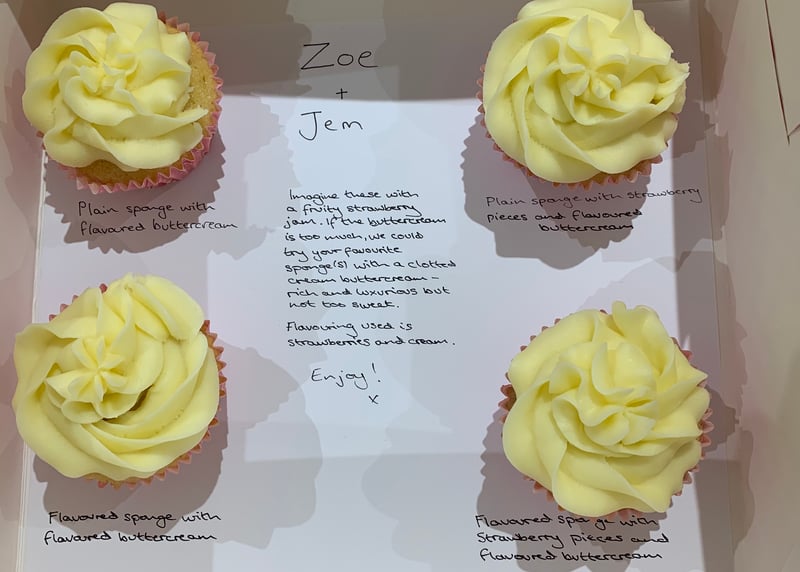 Zoe
+
Jem
Plain sponge with
flavoured buttercream
Plain sponge with strawberry
pieces and flavoured
buttercream
Imagine these with
a fruity strawberry
jam. If the buttercream
is too much, we could
try your favourite
sponge(s) with a clotted
cream buttercream -
rich and luxurious but
not too sweet.
Flavouring used is
strawberries and cream.
Enjoy!
x
Flavoured sponge with
flavoured buttercream
Flavoured sponge with
Strawberry pieces and
flavoured buttercream